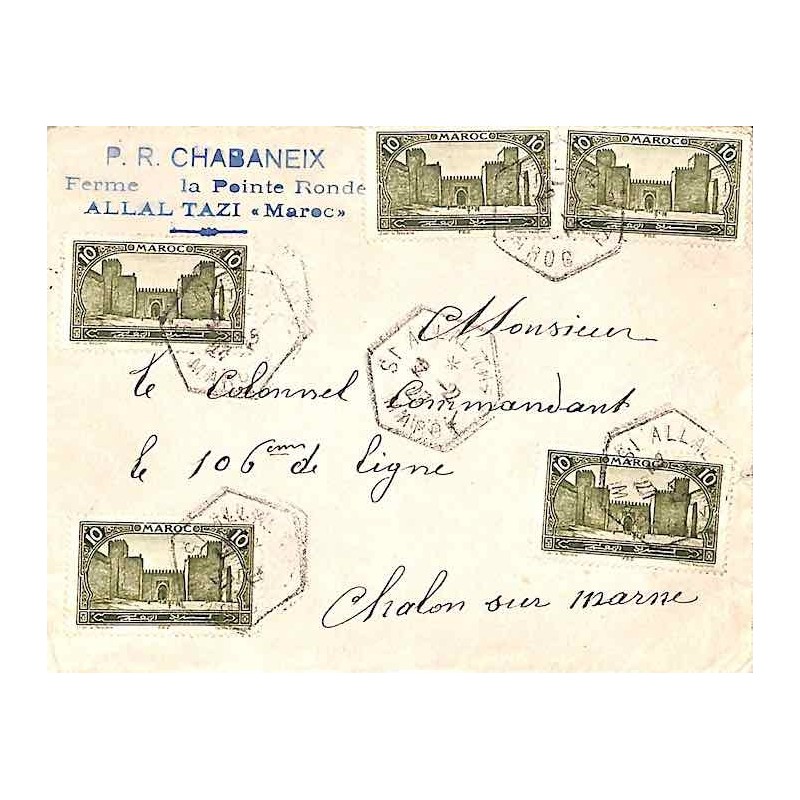 P. R. CHABANEIX
Ferme la Pointe Ronde
ALLAL TAZI «Maroc»
10 MAROC 10
10 MAROC 10
10 MAROC 10
Monsieur
le Colonnel Commandant
le 106 eme de ligne
10 MAROC 10
10 MAROC 10
Chalon sur marne
SI ALLAL
MAROC
SI ALLAL
MAROC